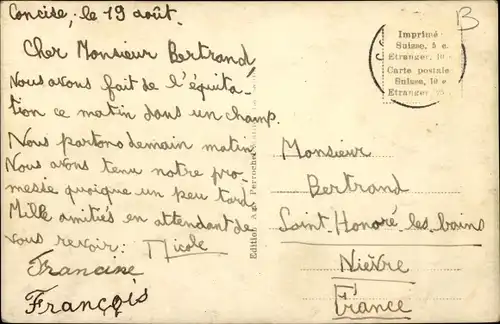 Concise, le 19 août.
Cher Monsieur Bertrand,
Nous avons fait de l'équita-
tion ce matin dans un champ.
Nous partons demain matin
Nous avons tenu notre pro-
messe quoique un peu tard
Mille amitiés en attendant de
vous revoir: Nicole
Francine
François
Edition
Perrochet
B
Imprimé
Suisse, 5 c.
Etranger, 10 c.
Carte postale
Suisse, 10 c
Etranger,
Monsieur
Bertrand
Saint-Honoré-les-bains
Nièvre
France